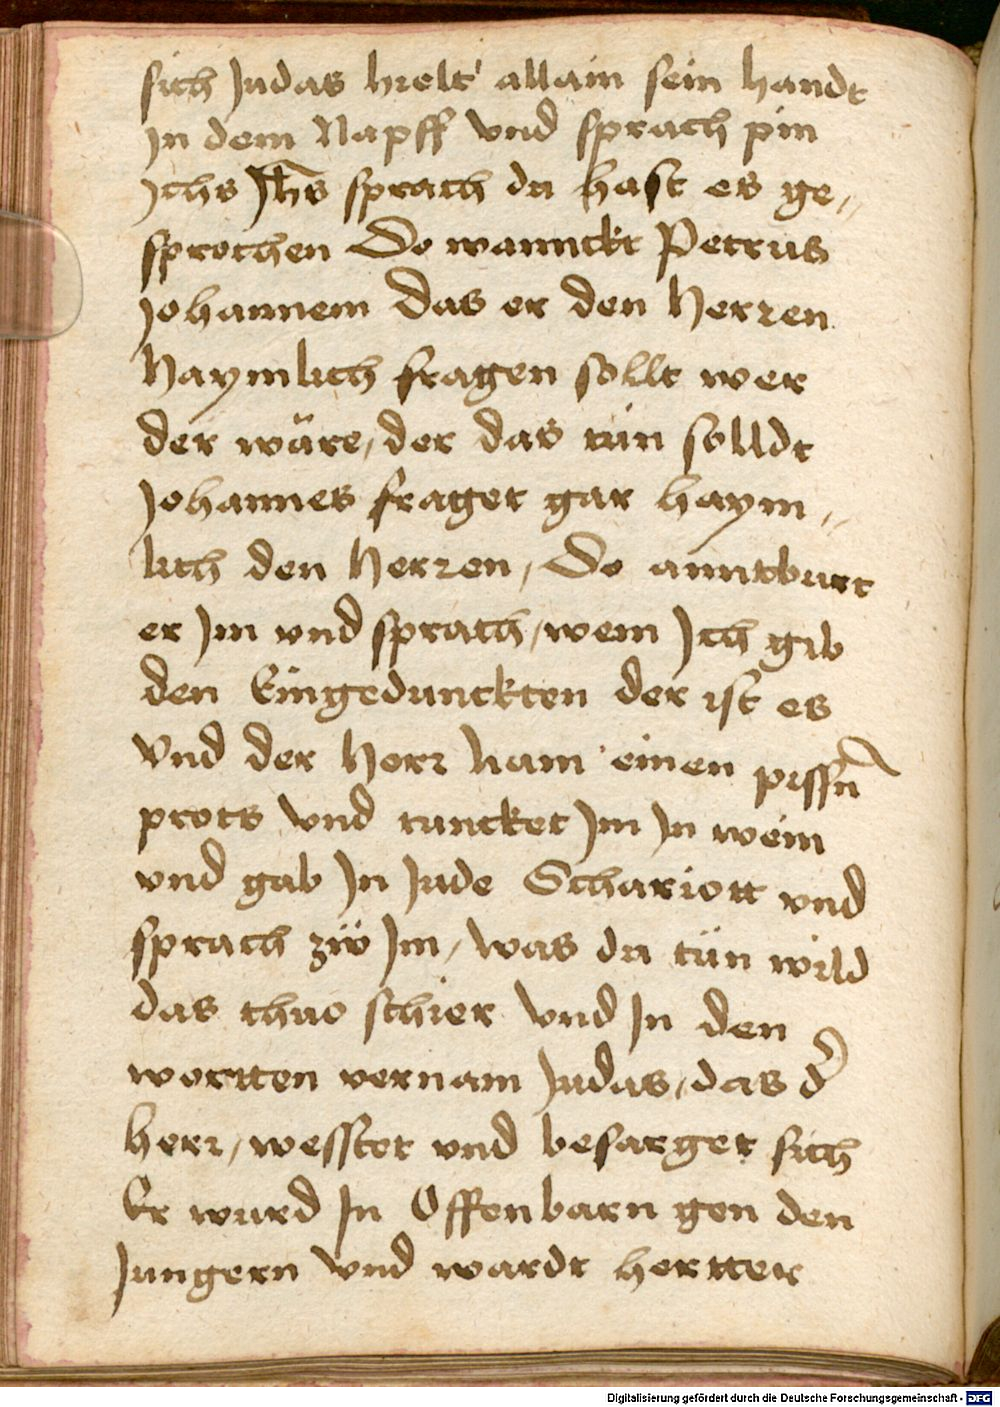 sich Judas hielt allain sein handt
Jn dem Napff vnd sprach pin
Jchs Jhs sprach du hast es ge„
sprochen Do wannckt Petrus
Johannem Das er den Herren
Haymlich fragen sollt wer
der wäre, der das tün solldt
Johannes fraget gar haym„
lich den Herren, Do anntburt
er Jm vnd sprach, wem Jch gib
den Eingedunckten der ist es
Vnd der Herr nam einen pissn̄
prots Vnd tuncket Jm Jn wein
vnd gab Jn Jude Schariott vnd
sprach zẅ Jm, was du tün wild
das thuo schier Vnd Jn den
wortten vernam Judas, das d̄
herr, wesstet vnd besarget sich
Er wurd Jn Offenbarn gen den
Jungern Vnd wardt hertter
Digitalisierung gefördert durch die Deutsche Forschungsgemeinschaft - DFG